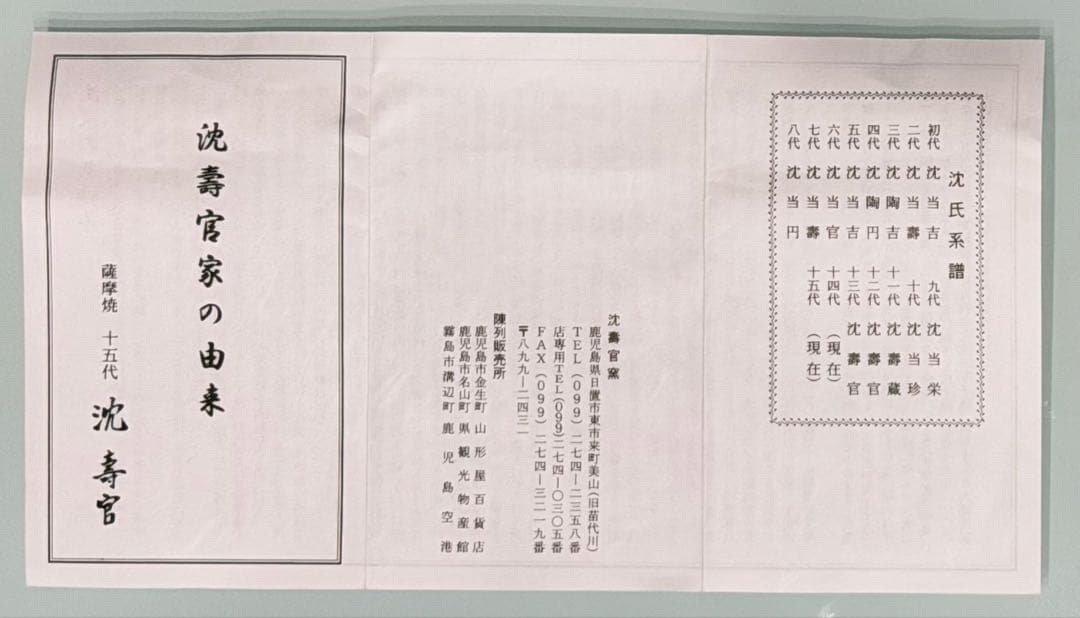 沈氏系譜
初代 沈当吉 九代 沈当栄
二代 沈当壽 十代 沈当珍
三代 沈陶吉 十一代 沈壽蔵
四代 沈陶円 十二代 沈壽官
五代 沈当吉 十三代 沈壽官
六代 沈当官 十四代 (現在)
七代 沈当壽 十五代 (現在)
八代 沈当円
沈壽官窯
鹿児島県日置市東市来町美山(旧苗代川)
TEL(099)二七四ー二三五八番
店専用TEL(099)二七四ー〇三〇五番
FAX(099)二七四ー三二一九番
〒八九九ー二四三一
陳列販売所
鹿児島市金生町 山形屋百貨店
鹿児島市名山町 県観光物産館
霧島市溝辺町 鹿児島空港
沈壽官家の由来
薩摩焼 十五代 沈壽官